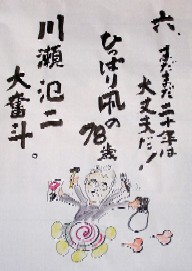 六、まだまだ二十年は
大丈夫だ！
ひっぱり凧の
78歳
川瀬氾二
大奮斗。